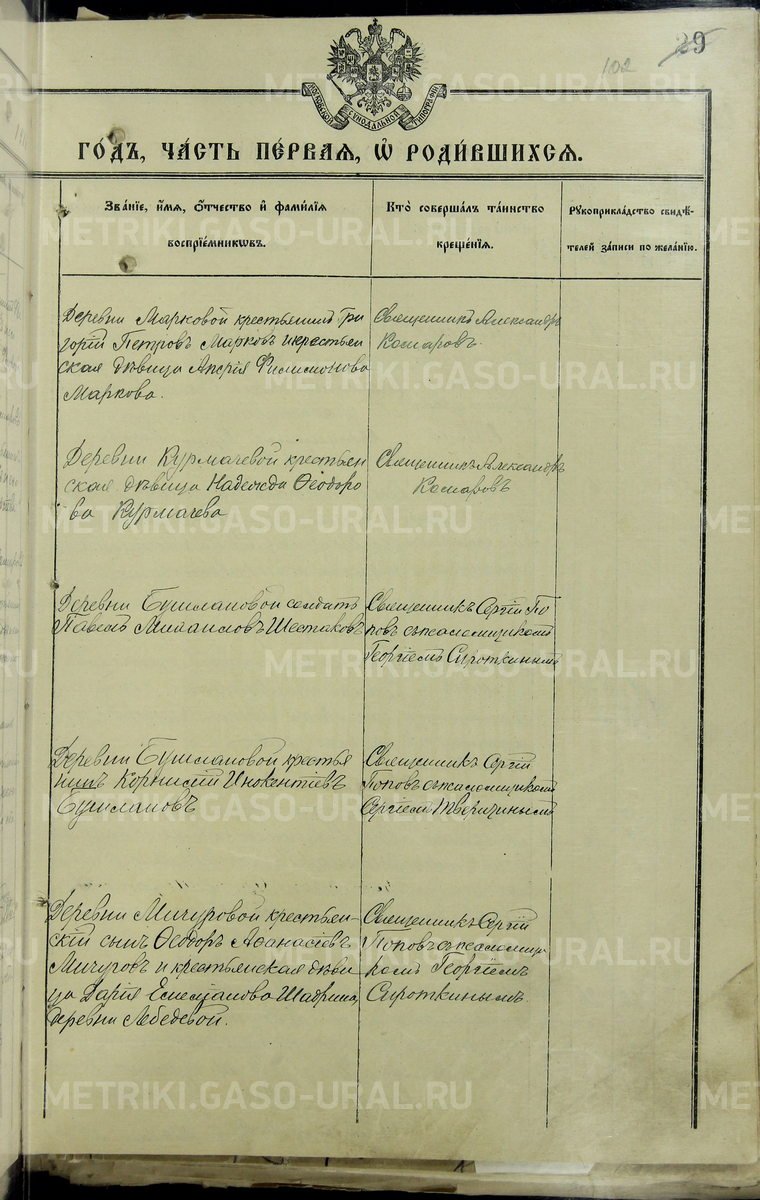 29
102
МОСКОВСКОЙ СУНОДАЛЬНОЙ ТИПОГРАФІИ
ГО́ДЪ, ЧА́СТЬ ПЕ́РВАЯ, Ѡ҆ РОДИ́ВШИХСЯ.
Зва́нїе, и҆́мя, ѻ҆́тчество и҆ фами́лїя
воспрїе́мникѡвъ.
Кто̀ соверша́лъ та́инство
креще́нїя.
Рꙋкоприкла́дство свидѣ́-
телей за́писи по жела́нїю.
Деревни Марковой крестьянинъ Гри
горій Петровъ Марковъ и крестьян
ская дѣвица Филимонова
Маркова.
Священникъ Александръ
Комаровъ.
Деревни Курмачевой крестьян
ская дѣвица Надежда Ѳеодоро
ва Курмачева
Священникъ Александръ
Комаровъ
Деревни Бушлановой солдатъ
Павелъ Михаиловъ Шестаковъ
Священникъ Сергій По
повъ съ псаломщикомъ
Георгіемъ Сироткинымъ
Деревни Бушлановой крестья
нинъ Корнилій Инокентіевъ
Бушлановъ
Священникъ Сергій
Поповъ съ псаломщикомъ
Сергіемъ Тверитинымъ
Деревни Мичуровой крестьян-
скій сынъ Ѳеодоръ Аѳанасіевъ
Мичуровъ и крестьянская дѣви
ца Дарія Емельянова Шадрина,
деревни Лебедевой.
Священникъ Сергій
Поповъ съ псаломщи-
комъ Георгіемъ
Сироткинымъ.
METRIKI.GASO-URAL.RU